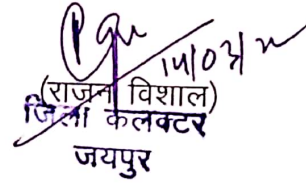 14/03/22
(राजन विशाल)
जिला कलक्टर
जयपुर